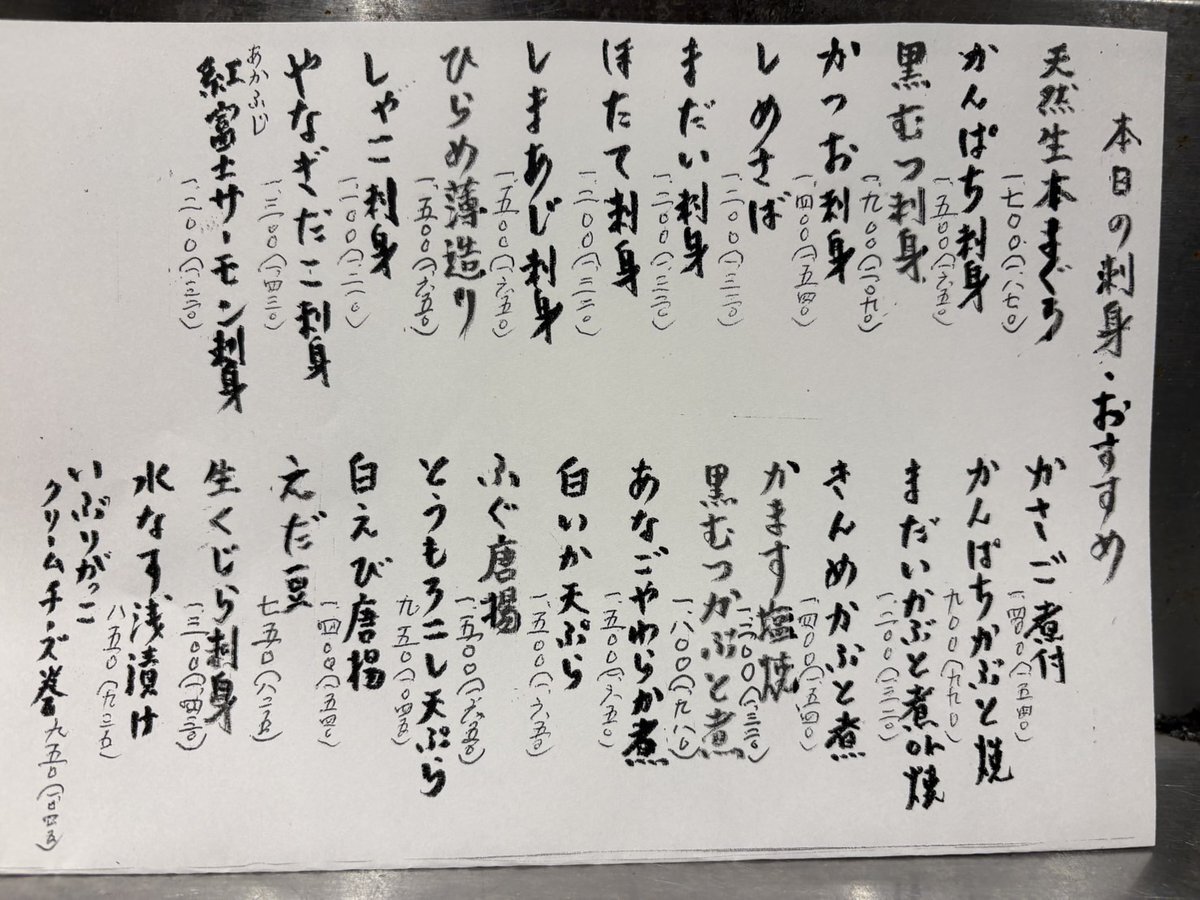 本日の刺身・おすすめ
天然生本まぐろ
一、七〇〇(一、八七〇)
かんぱち刺身
一、五〇〇(一、六五〇)
黒むつ刺身
一、九〇〇(二、〇九〇)
かつお刺身
一、四〇〇(一、五四〇)
しめさば
一、二〇〇(一、三二〇)
まだい刺身
一、二〇〇(一、三二〇)
ほたて刺身
一、二〇〇(一、三二〇)
しまあじ刺身
一、五〇〇(一、六五〇)
ひらめ薄造り
一、五〇〇(一、六五〇)
しゃこ刺身
一、一〇〇(一、二一〇)
やなぎだこ刺身
一、三〇〇(一、四三〇)
あかふじ
紅富士サーモン刺身
一、二〇〇(一、三二〇)
かさご煮付
一、四〇〇(一、五四〇)
かんぱちかぶと焼
九〇〇(九九〇)
まだいかぶと煮or焼
一、二〇〇(一、三二〇)
きんめかぶと煮
一、四〇〇(一、五四〇)
かます塩焼
一、二〇〇(一、三二〇)
黒むつかぶと煮
一、八〇〇(一、九八〇)
あなごやわらか煮
一、五〇〇(一、六五〇)
白いか天ぷら
一、五〇〇(一、六五〇)
ふぐ唐揚
一、五〇〇(一、六五〇)
とうもろこし天ぷら
九五〇(一、〇四五)
白えび唐揚
一、四〇〇(一、五四〇)
えだ豆
七五〇(八二五)
生くじら刺身
一、三〇〇(一、四三〇)
水なす浅漬け
八五〇(九三五)
いぶりがっこ
クリームチーズ巻 九五〇(一、〇四五)